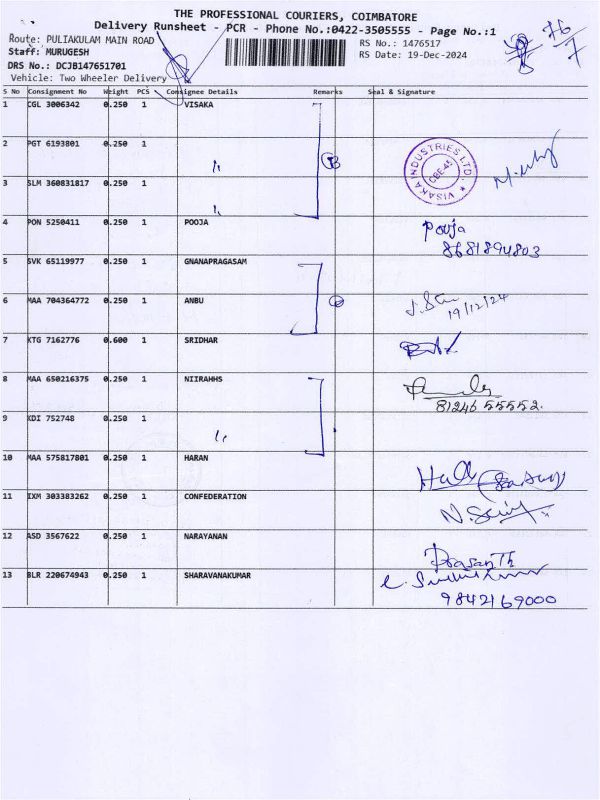 THE PROFESSIONAL COURIERS, COIMBATORE
Delivery Runsheet - PCR - Phone No.:0422-3505555 - Page No.:1
Route: PULIAKULAM MAIN ROAD
RS No.: 1476517
Staff: MURUGESH
RS Date: 19-Dec-2024
DRS No.: DCJB147651701
Vehicle: Two Wheeler Delivery
76/7
S No Consignment No Weight PCS Consignee Details Remarks Seal & Signature
1 CGL 3006342 0.250 1 VISAKA
2 PGT 6193801 0.250 1 〃
VISAKA INDUSTRIES LTD. CBE-45
3 SLM 360831817 0.250 1 〃
4 PON 5250411 0.250 1 POOJA Pooja
8681894803
5 SVK 65119977 0.250 1 GNANAPRAGASAM
6 MAA 704364772 0.250 1 ANBU
19/12/24
7 KTG 7162776 0.600 1 SRIDHAR
8 MAA 650216375 0.250 1 NIIRAHHS
81246 55552.
9 KDI 752748 0.250 1 〃
10 MAA 575817801 0.250 1 HARAN
11 IXM 303383262 0.250 1 CONFEDERATION
12 ASD 3567622 0.250 1 NARAYANAN
PrasanTh
13 BLR 220674943 0.250 1 SHARAVANAKUMAR
9842169000